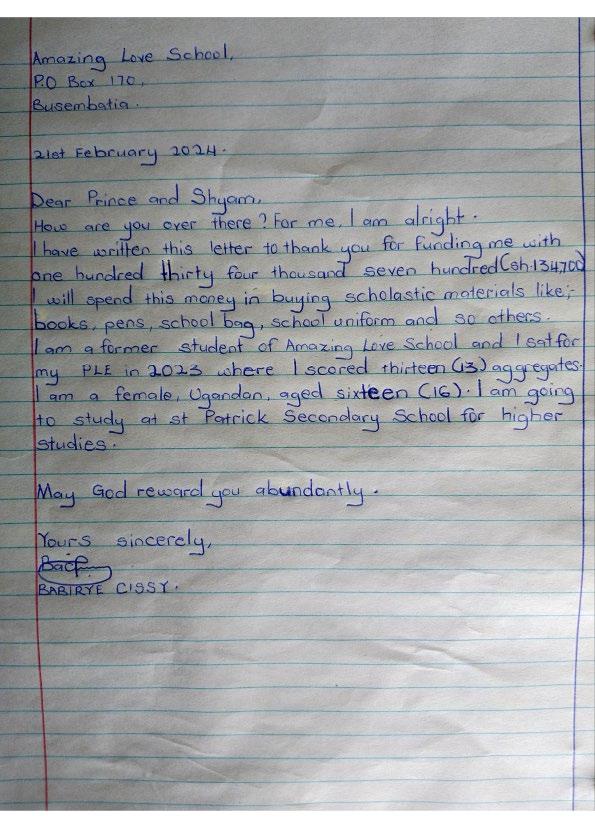 Amazing Love School,
P.O Box 170,
Busembatia.
21st February 2024.
Dear Prince and Shyam,
How are you over there? For me, I am alright.
I have written this letter to thank you for funding me with
one hundred thirty four thousand seven hundred (sh.134700)
I will spend this money in buying scholastic materials like;
books, pens, school bag, school uniform and so others.
I am a former student of Amazing Love School and I sat for
my PLE in 2023 where I scored thirteen (13) aggregates.
I am a female, Ugandan, aged sixteen (16). I am going
to study at st Patrick Secondary School for higher
studies.
May God reward you abundantly.
Yours sincerely,
BABIRYE CISSY.